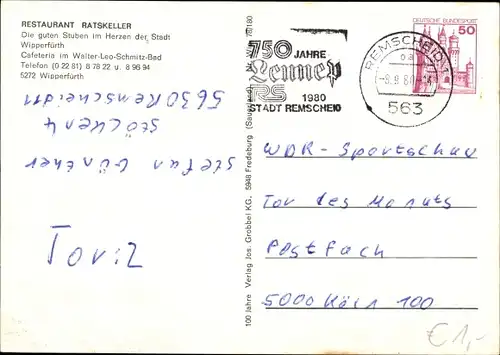 RESTAURANT RATSKELLER
Die guten Stuben im Herzen der Stadt
Wipperfürth
Cafeteria im Walter-Leo-Schmitz-Bad
Telefon (0 22 81) 8 78 22 u. 8 96 94
5272 Wipperfürth
Stefan Günther
Stöcken 4
5630 Remscheid 11
Tor: 2
100 Jahre Verlag Jos. Grobbel KG., 5948 Fredeburg (Sauerland)
750 JAHRE
Lennep
RS
1980
STADT REMSCHEID
REMSCHEID 1
563
DEUTSCHE BUNDESPOST
50
WDR - Sportschau
Tor des Monats
Postfach
5000 Köln 100
€ 1,-